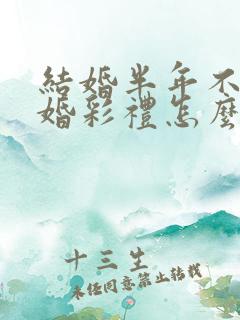 結婚半年不
婚彩禮怎麼
十三生
未經同意禁止轉載